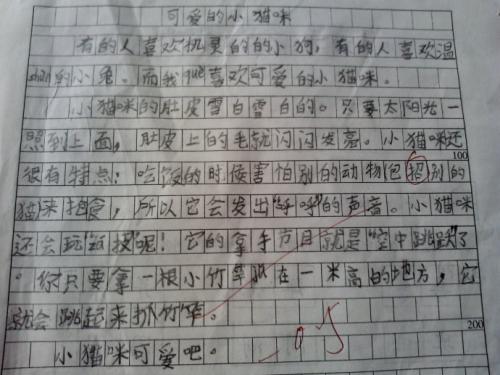 可爱的小猫咪
有的人喜欢机灵的的小狗，有的人喜欢温
shùn的小兔。而我què喜欢可爱的小猫咪。
小猫咪的肚皮雪白雪白的。只要太阳光一
照到上面，肚皮上的毛就闪闪发亮。小猫咪还
100
很有特点：吃饭的时侯害怕别的动物包括别的
猫来抢食，所以它会发出"呼呼"的声音。小猫咪
还会玩"杂技"呢！它的拿手节目就是"空中跳跃"了
。你只要拿一根小竹竿 在一米高的地方，它
就会跳起来扑竹竿。
200
小猫咪可爱吧。